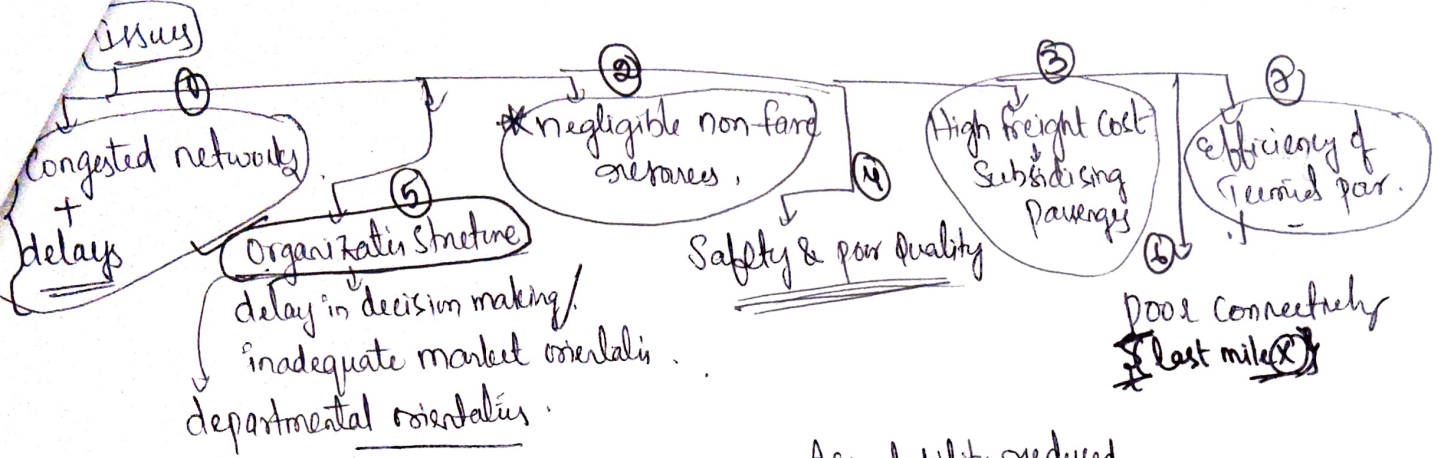 issues
①
Congested networks
+
delays
⑤
Organization Structure
delay in decision making/
inadequate market orientatis.
departmental orientatis.
②
* negligible non-fare
revenues,
④
Safety & poor Quality
③
High freight cost
Subsidising
Passengers
⑥
poor connectivity
{last mile(X)}
efficiency of